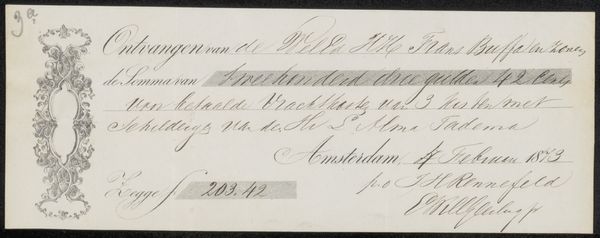 3a
Ontvangen van de WelEd HH Frans Buffa en Zonen
de Somma van tweehonderd drie gulden 42 Cents
voor betaalde Vrachtkosten van 3 kisten met
Schilderijen van den Hr L. Alma Tadema
Amsterdam 7 Februari 1873
Zegge f 203.42
p.o J H Rennefeld